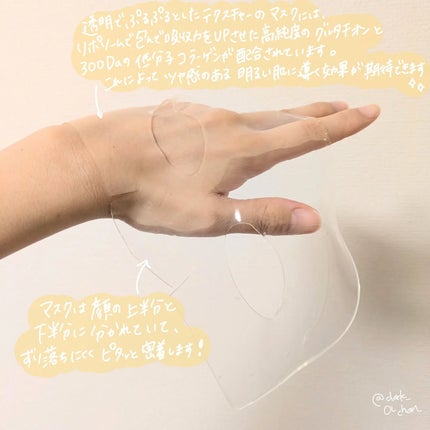 透明で、ぷるぷるとしたテクスチャーのマスクには、
リポソームで包んで吸収力をUPさせた高純度のグルタチオンと
300Daの低分子コラーゲンが配合されています。
これによってツヤ感のある明るい肌に導く効果が期待できます
マスクは顔の上半分と
下半分に分かれていて、
ずり落ちにくくピタッと密着します!